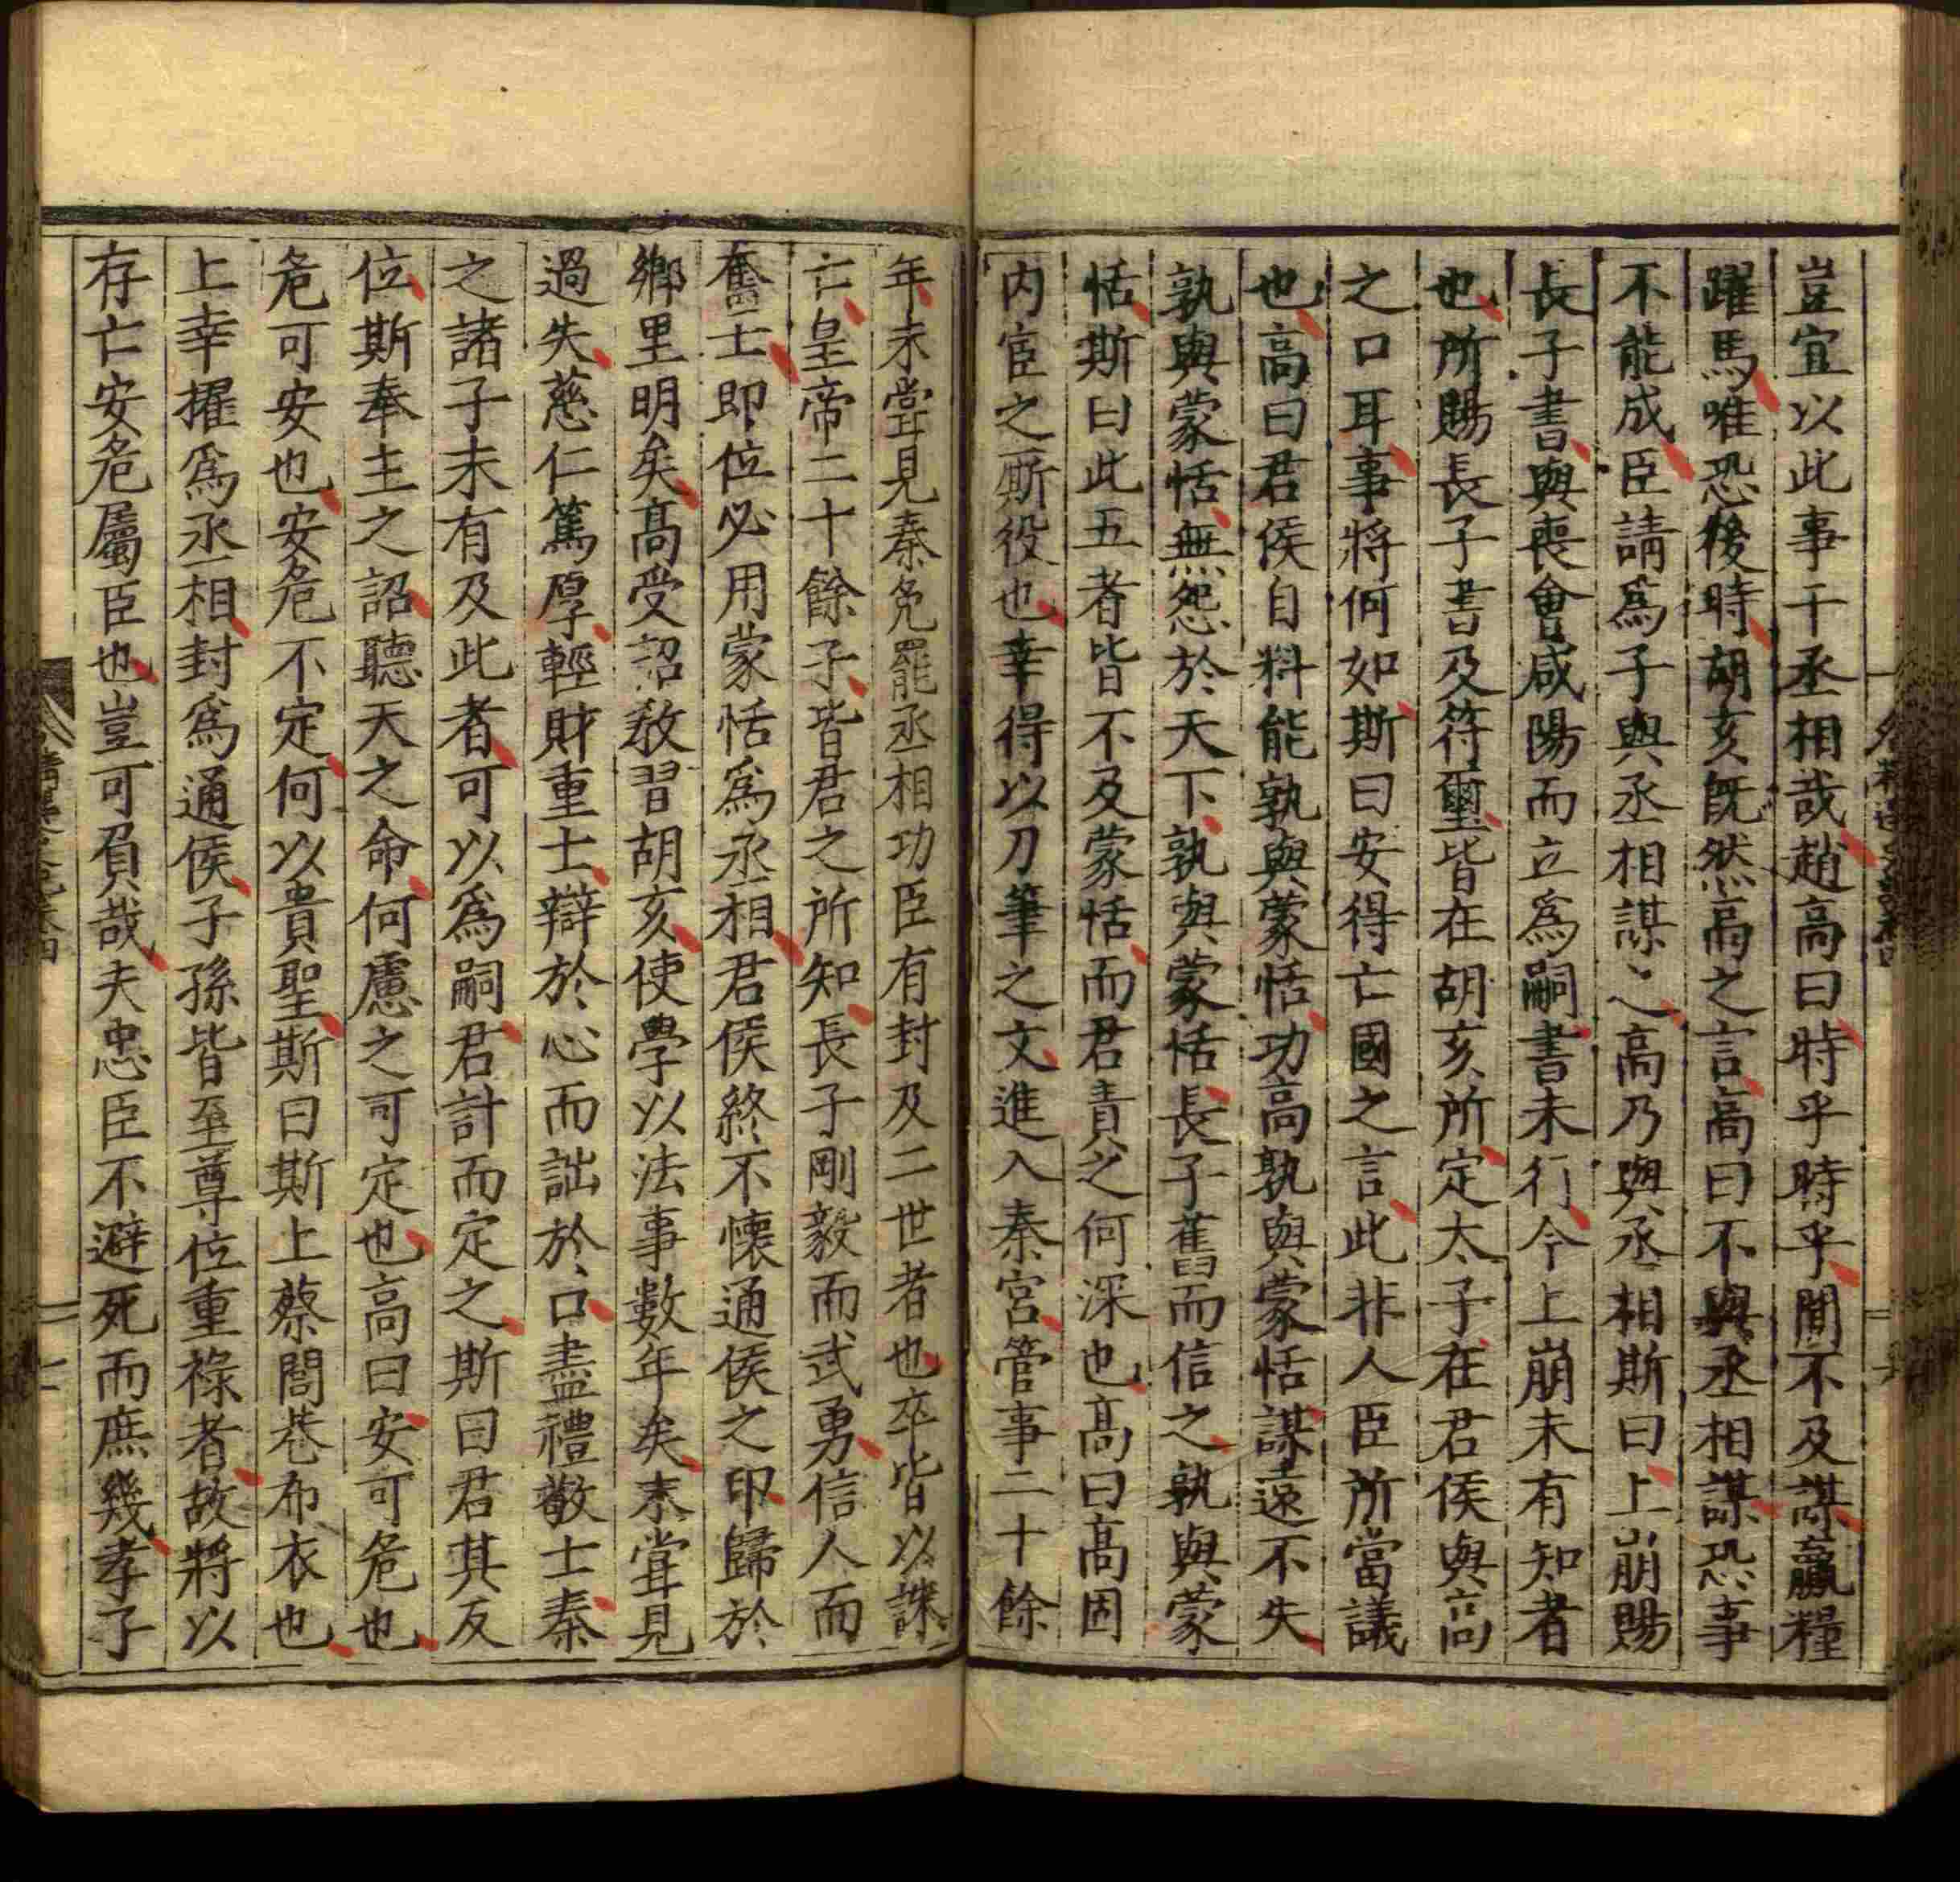 豈宜以此事干丞相哉趙高曰時乎時乎間不及謀贏糧
躍馬唯恐後時胡亥旣然高之言高曰不與丞相謀恐事
不能成臣請爲子與丞相謀之高乃與丞相斯曰上崩賜
長子書與喪會咸陽而立爲嗣書未行今上崩未有知者
也所賜長子書及符璽皆在胡亥所定太子在君侯與高
之口耳事將何如斯曰安得亡國之言此非人臣所當議
也高曰君侯自料能孰與蒙恬功高孰與蒙恬謀遠不失
孰與蒙恬無怨於天下孰與蒙恬長子舊而信之孰與蒙
恬斯曰此五者皆不及蒙恬而君責之何深也高曰高固
內宦之廝役也幸得以刀筆之文進入秦宮管事二十餘
年未嘗見秦免罷丞相功臣有封及二世者也卒皆以誅
亡皇帝二十餘子皆君之所知長子剛毅而武勇信人而
奮士即位必用蒙恬爲丞相君侯終不懷通侯之印歸於
鄉里明矣高受詔敎習胡亥使學以法事數年矣未嘗見
過失慈仁篤厚輕財重士辯於心而詘於口盡禮敬士秦
之諸子未有及此者可以爲嗣君計而定之斯曰君其反
位斯奉主之詔聽天之命何慮之可定也高曰安可危也
危可安也安危不定何以貴聖斯曰斯上蔡閭巷布衣也
上幸擢爲丞相封爲通侯子孫皆至尊位重祿者故將以
存亡安危屬臣也豈可負哉夫忠臣不避死而庶幾孝子